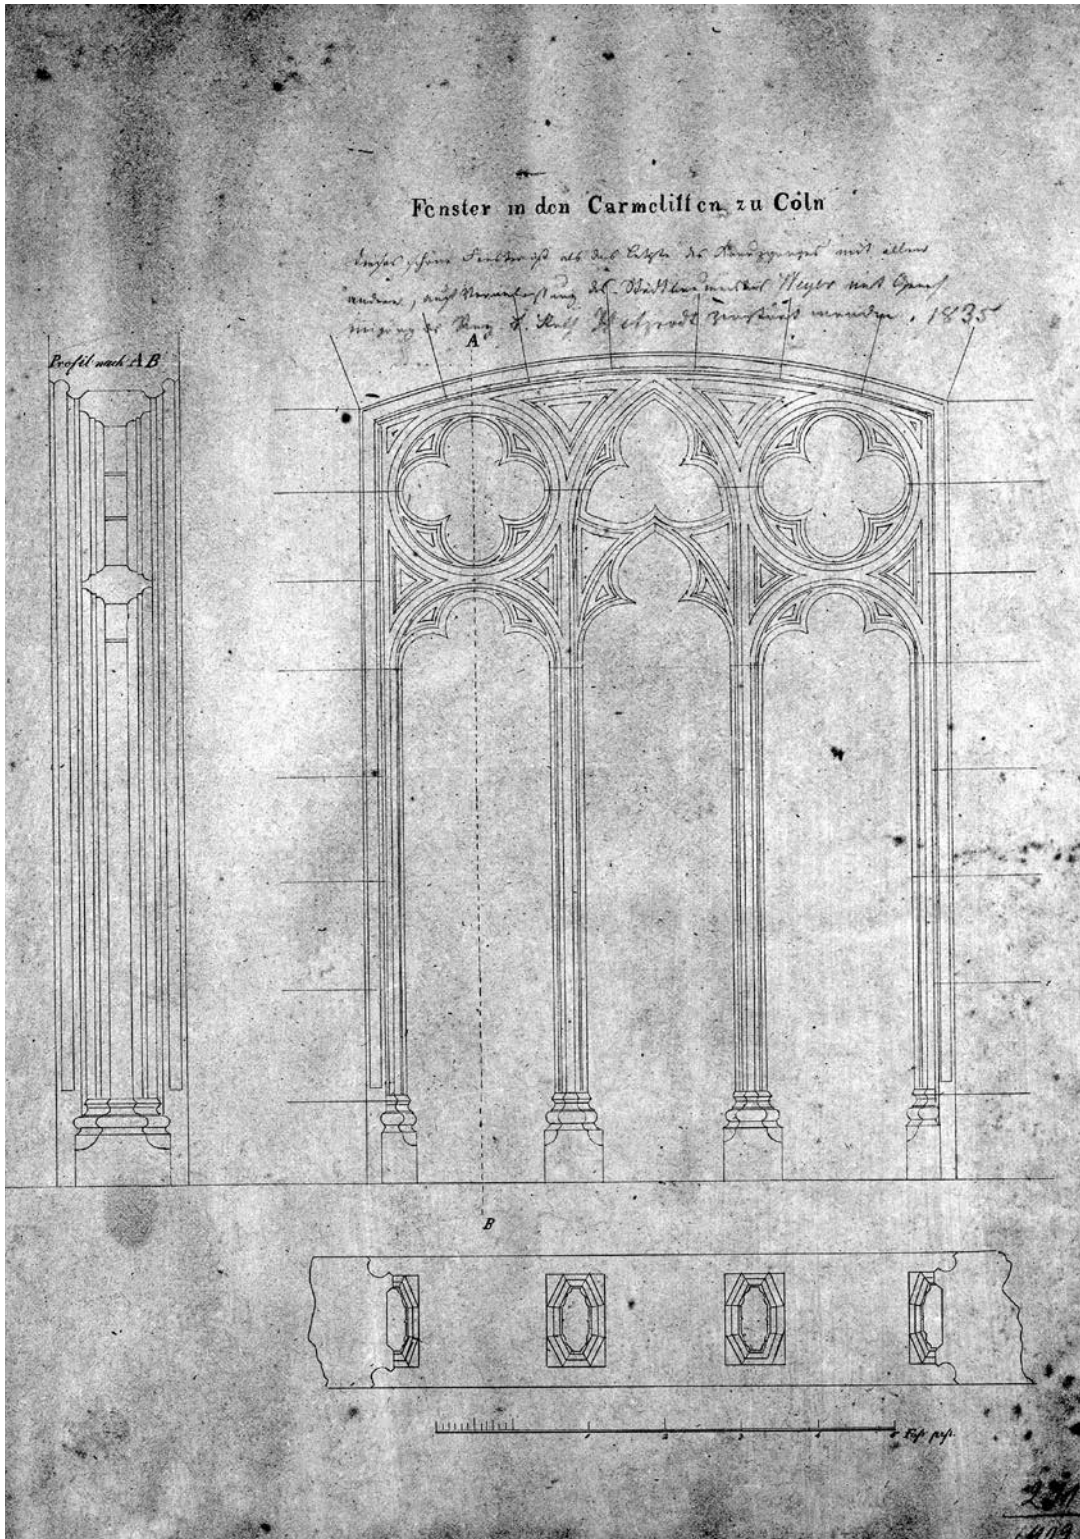 Fenster in den Carmelitten zu Cöln
dieses schöne Fenster ist als das letzte des Kreuzganges mit allen
anderen, auf Veranlassung des Stadtbaumeisters Weyer mit Geneh
migung des zerstört worden. 1835
Profil nach A B
A
B
1 2 3 4 5 Fuß